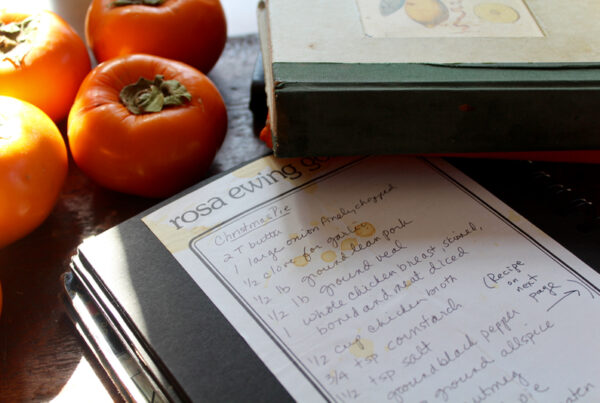 rosa ewing
Christmas Pie
2 T butter
1 large onion finely chopped
1/2 clove for garlic
1/2 lb ground lean pork
1/2 lb ground veal
1 whole chicken breast, skinned,
boned and meat diced
1/2 cup chicken broth
3/4 tsp cornstarch
1 1/2 tsp salt
ground black pepper
ground allspice
nutmeg
pie
(Recipe
on
next
page)